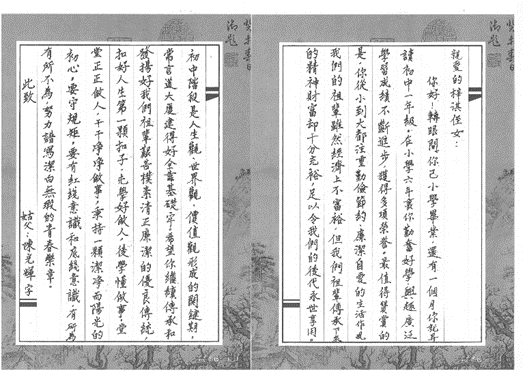 親愛的梓淇侄女：
你好！轉眼間，你已小學畢業，還有一個月你就要
讀初中一年級，在小學六年裏你勤奮好學興趣廣泛
學習成績不斷進步，獲得多項榮譽。最值得贊賞的
是，你從小到大都注重勤儉節約，廉潔自愛的生活作風
我們的祖輩雖然經濟上不富裕，但我們祖輩傳承下來
的精神財富却十分充裕，足以令我們的後代永世享用。
初中階段是人生觀、世界觀、價值觀形成的關鍵期，
常言道大廈建得好全靠基礎牢！希望你繼續傳承和
發揚好我們祖輩艱苦樸素清正廉潔的優良傳統，
扣好人生第一顆扣子，先學好做人，後學懂做事，堂
堂正正做人，干干净净做事，秉持一顆潔净而陽光的
初心，要守規矩，要有紅綫意識和底綫意識，有所為
有所不為，努力譜寫潔白無瑕的青春樂章。
此致
姑父：陳光輝字